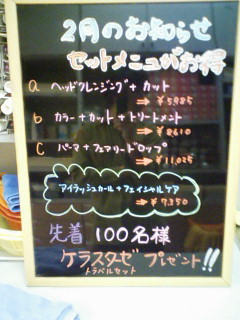 2月のお知らせ
セットメニューがお得
a ヘッドクレンジング+カット
⇒ ¥5,985
b カラー+カット+トリートメント
⇒ ¥8,610
C パーマ+フェアリードロップ
⇒ ¥11,025
アイラッシュカール+フェイシャルケア
⇒ ¥7,350
先着 100名様
ケラスターゼ プレゼント!!
トラベルセット